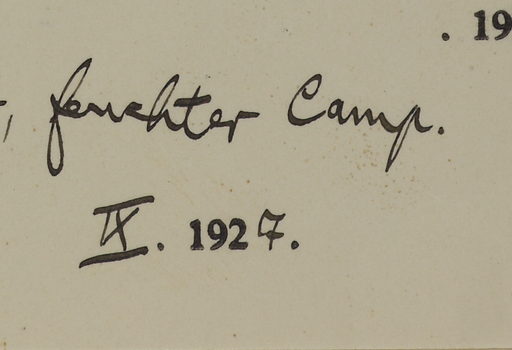 . 19
, feuchter Camp.
IX. 1927.